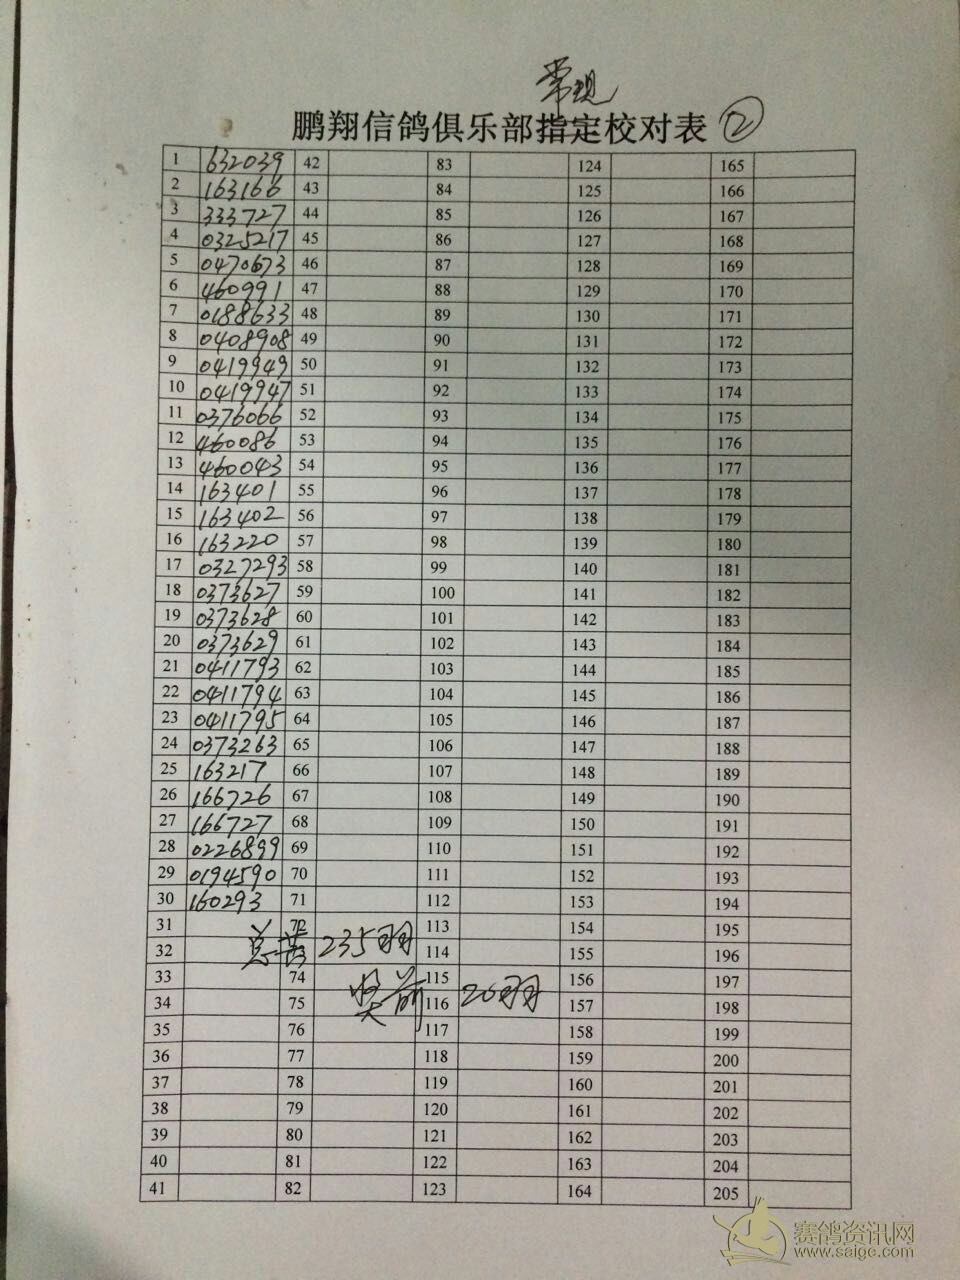 常规
鹏翔信鸽俱乐部指定校对表 ②
1 632039 42 83 124 165
2 163166 43 84 125 166
3 333727 44 85 126 167
4 0325217 45 86 127 168
5 0470673 46 87 128 169
6 460991 47 88 129 170
7 0188633 48 89 130 171
8 0408908 49 90 131 172
9 0419949 50 91 132 173
10 0419947 51 92 133 174
11 0376066 52 93 134 175
12 460086 53 94 135 176
13 460043 54 95 136 177
14 163401 55 96 137 178
15 163402 56 97 138 179
16 163220 57 98 139 180
17 0327293 58 99 140 181
18 0373627 59 100 141 182
19 0373628 60 101 142 183
20 0373629 61 102 143 184
21 0411793 62 103 144 185
22 0411794 63 104 145 186
23 0411795 64 105 146 187
24 0373263 65 106 147 188
25 163217 66 107 148 189
26 166726 67 108 149 190
27 166727 68 109 150 191
28 0226899 69 110 151 192
29 0194590 70 111 152 193
30 160293 71 112 153 194
31 72 113 154 195
总 235羽
32 73 114 155 196
33 74 115 156 197
奖前 20羽
34 75 116 157 198
35 76 117 158 199
36 77 118 159 200
37 78 119 160 201
38 79 120 161 202
39 80 121 162 203
40 81 122 163 204
41 82 123 164 205
赛鸽资讯网
www.saige.com